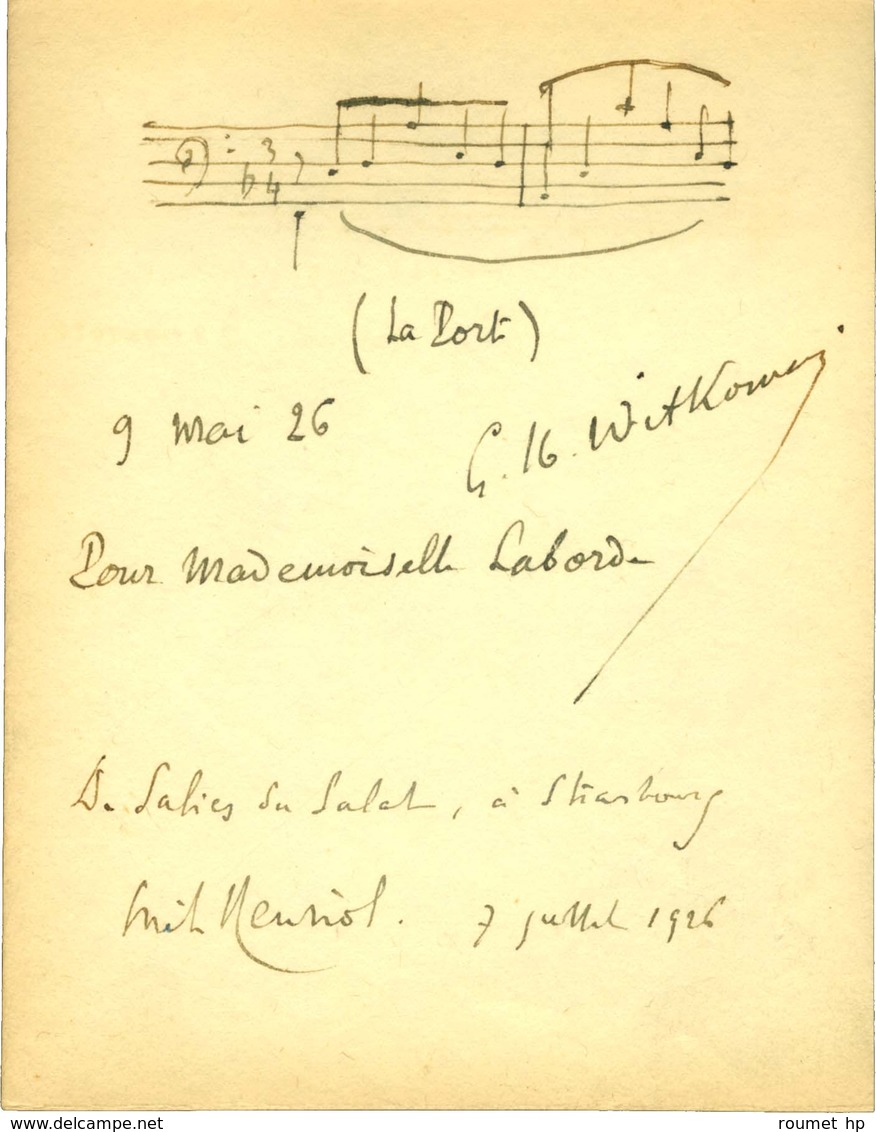 3
4
(La Port)
9 mai 26
G. H. Witkowski
Pour Mademoiselle Laborde
De Salies du Salat, à Strasbourg
Emile Henriot. 7 juillet 1926
www.delcampe.net
roumet hp